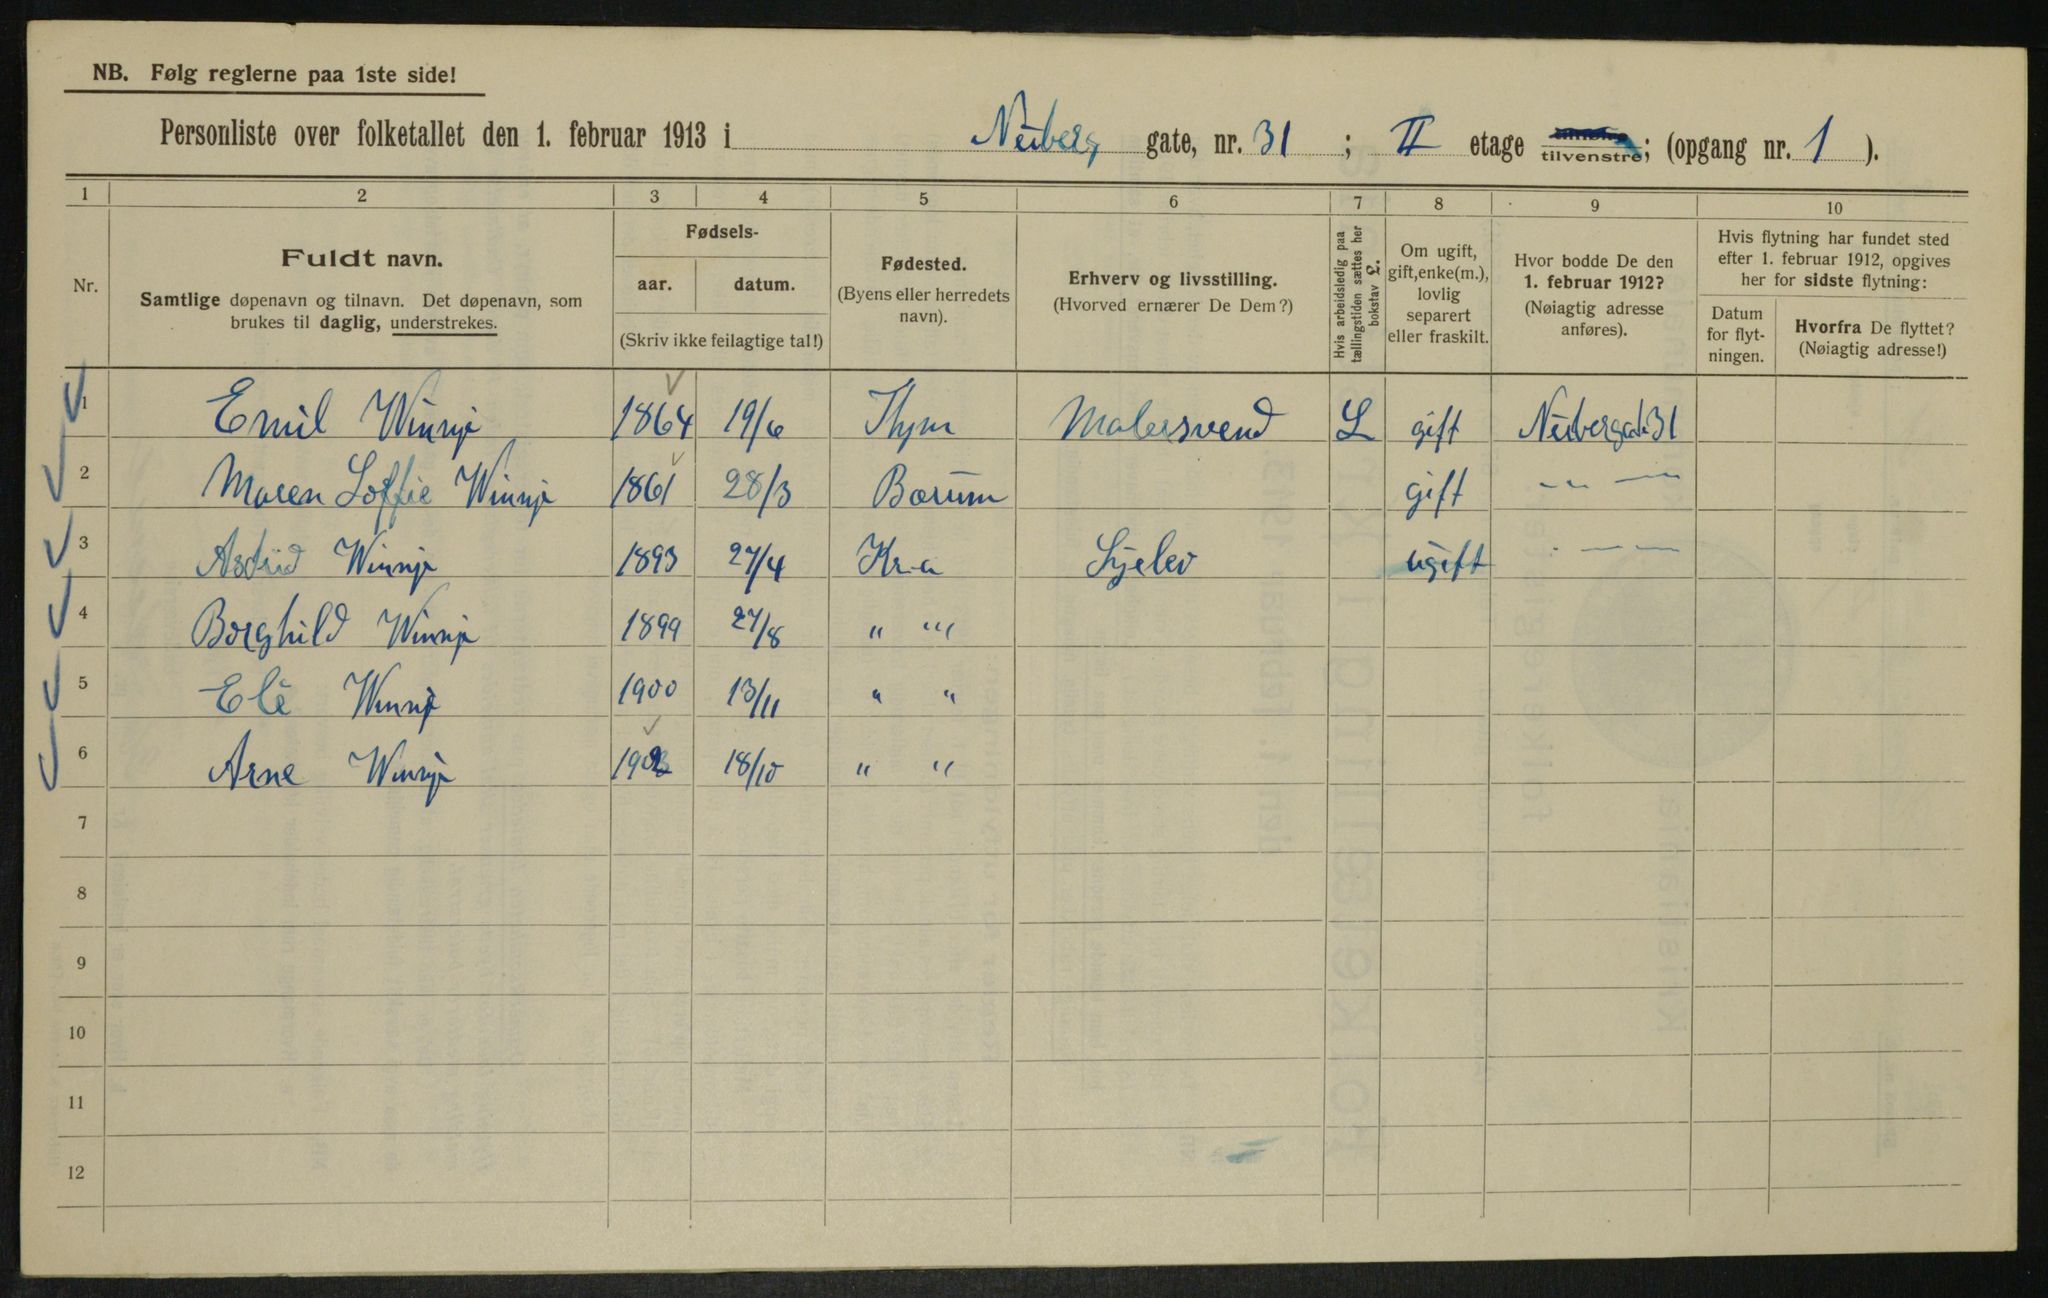 NB. Følg reglerne paa 1ste side!
Personliste over folketallet den 1. februar 1913 i Neuberg gate, nr. 31 ; II etage tilvenstre; (opgang nr. 1 ).
1 2 3 4 5 6 7 8 9 10
Nr.
Fuldt navn.
Samtlige døpenavn og tilnavn. Det døpenavn, som
brukes til daglig, understrekes.
Fødsels-
aar. datum.
(Skriv ikke feilagtige tal!)
Fødested.
(Byens eller herredets
navn).
Erhverv og livsstilling.
(Hvorved ernærer De Dem?)
Hvis arbeidsledig paa
tællingstiden sættes her
bokstav L.
Om ugift,
gift, enke(m.),
lovlig
separert
eller fraskilt.
Hvor bodde De den
1. februar 1912?
(Nøiagtig adresse
anføres).
Hvis flytning har fundet sted
efter 1. februar 1912, opgives
her for sidste flytning:
Datum
for flyt-
ningen.
Hvorfra De flyttet?
(Nøiagtig adresse!)
1 Emil Winnje 1864 19/6 Malersvend L gift 31
2 Maren Soffie Winnje 1861 28/3 Bærum gift " " —
3 Astrid Winnje 1893 27/4 Kr.a ugift " — —
4 Borghild Winnje 1899 27/8 " "
5 Winnje 1900 13/11 " "
6 Arne Winnje 1902 18/10 " "
7
8
9
10
11
12